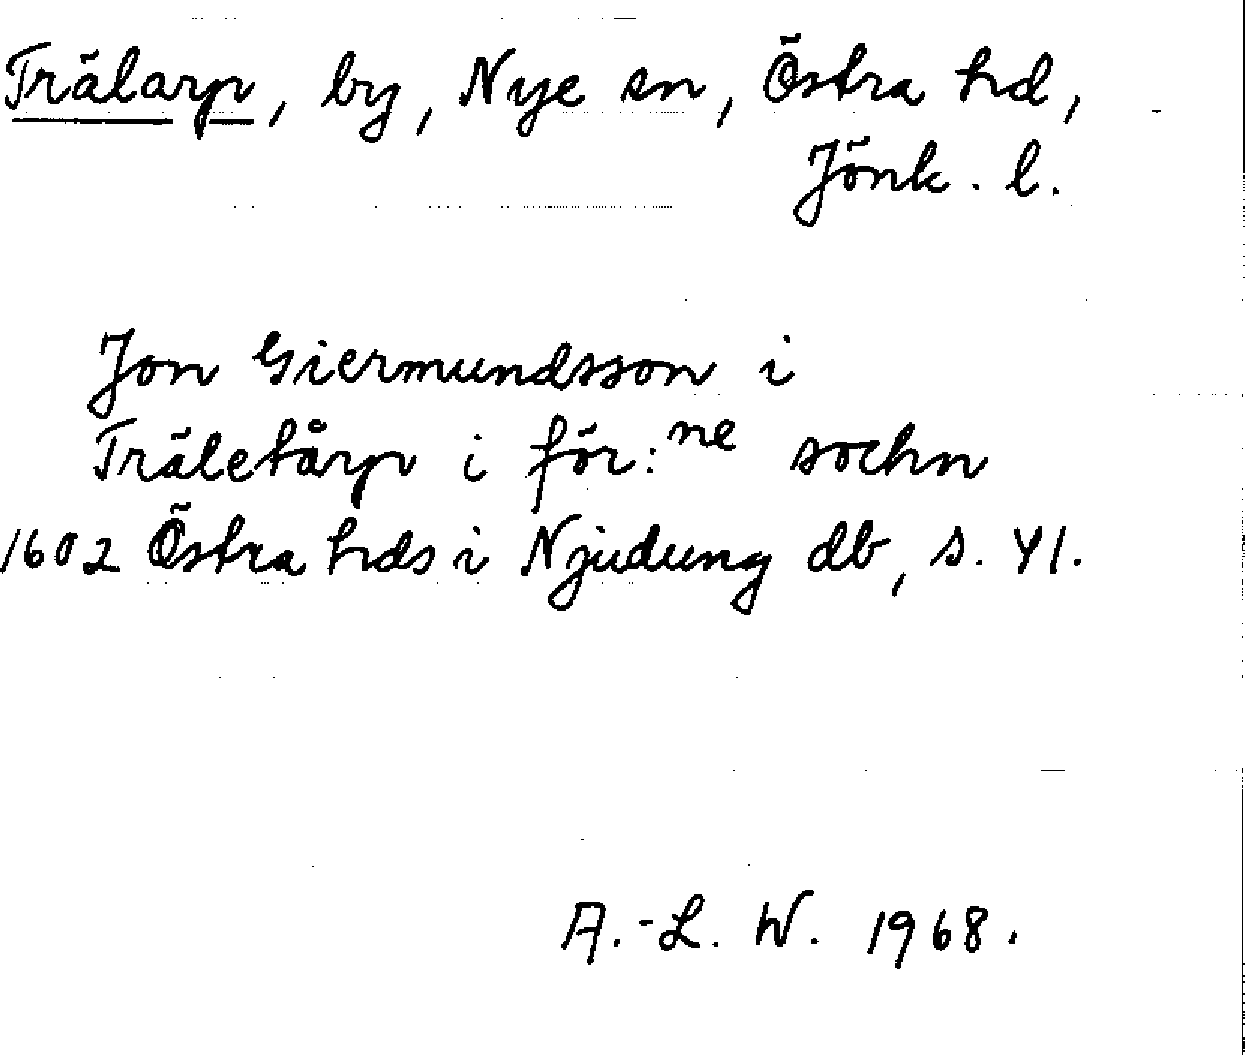 Trälarp, by, Nye sn, Östra hd,
Jönk. l.
Jon Giermundsson i
Träletårp i för:ne sochn
1602 Östra hds i Njudung db, s. 41.
A.-L. W. 1968.